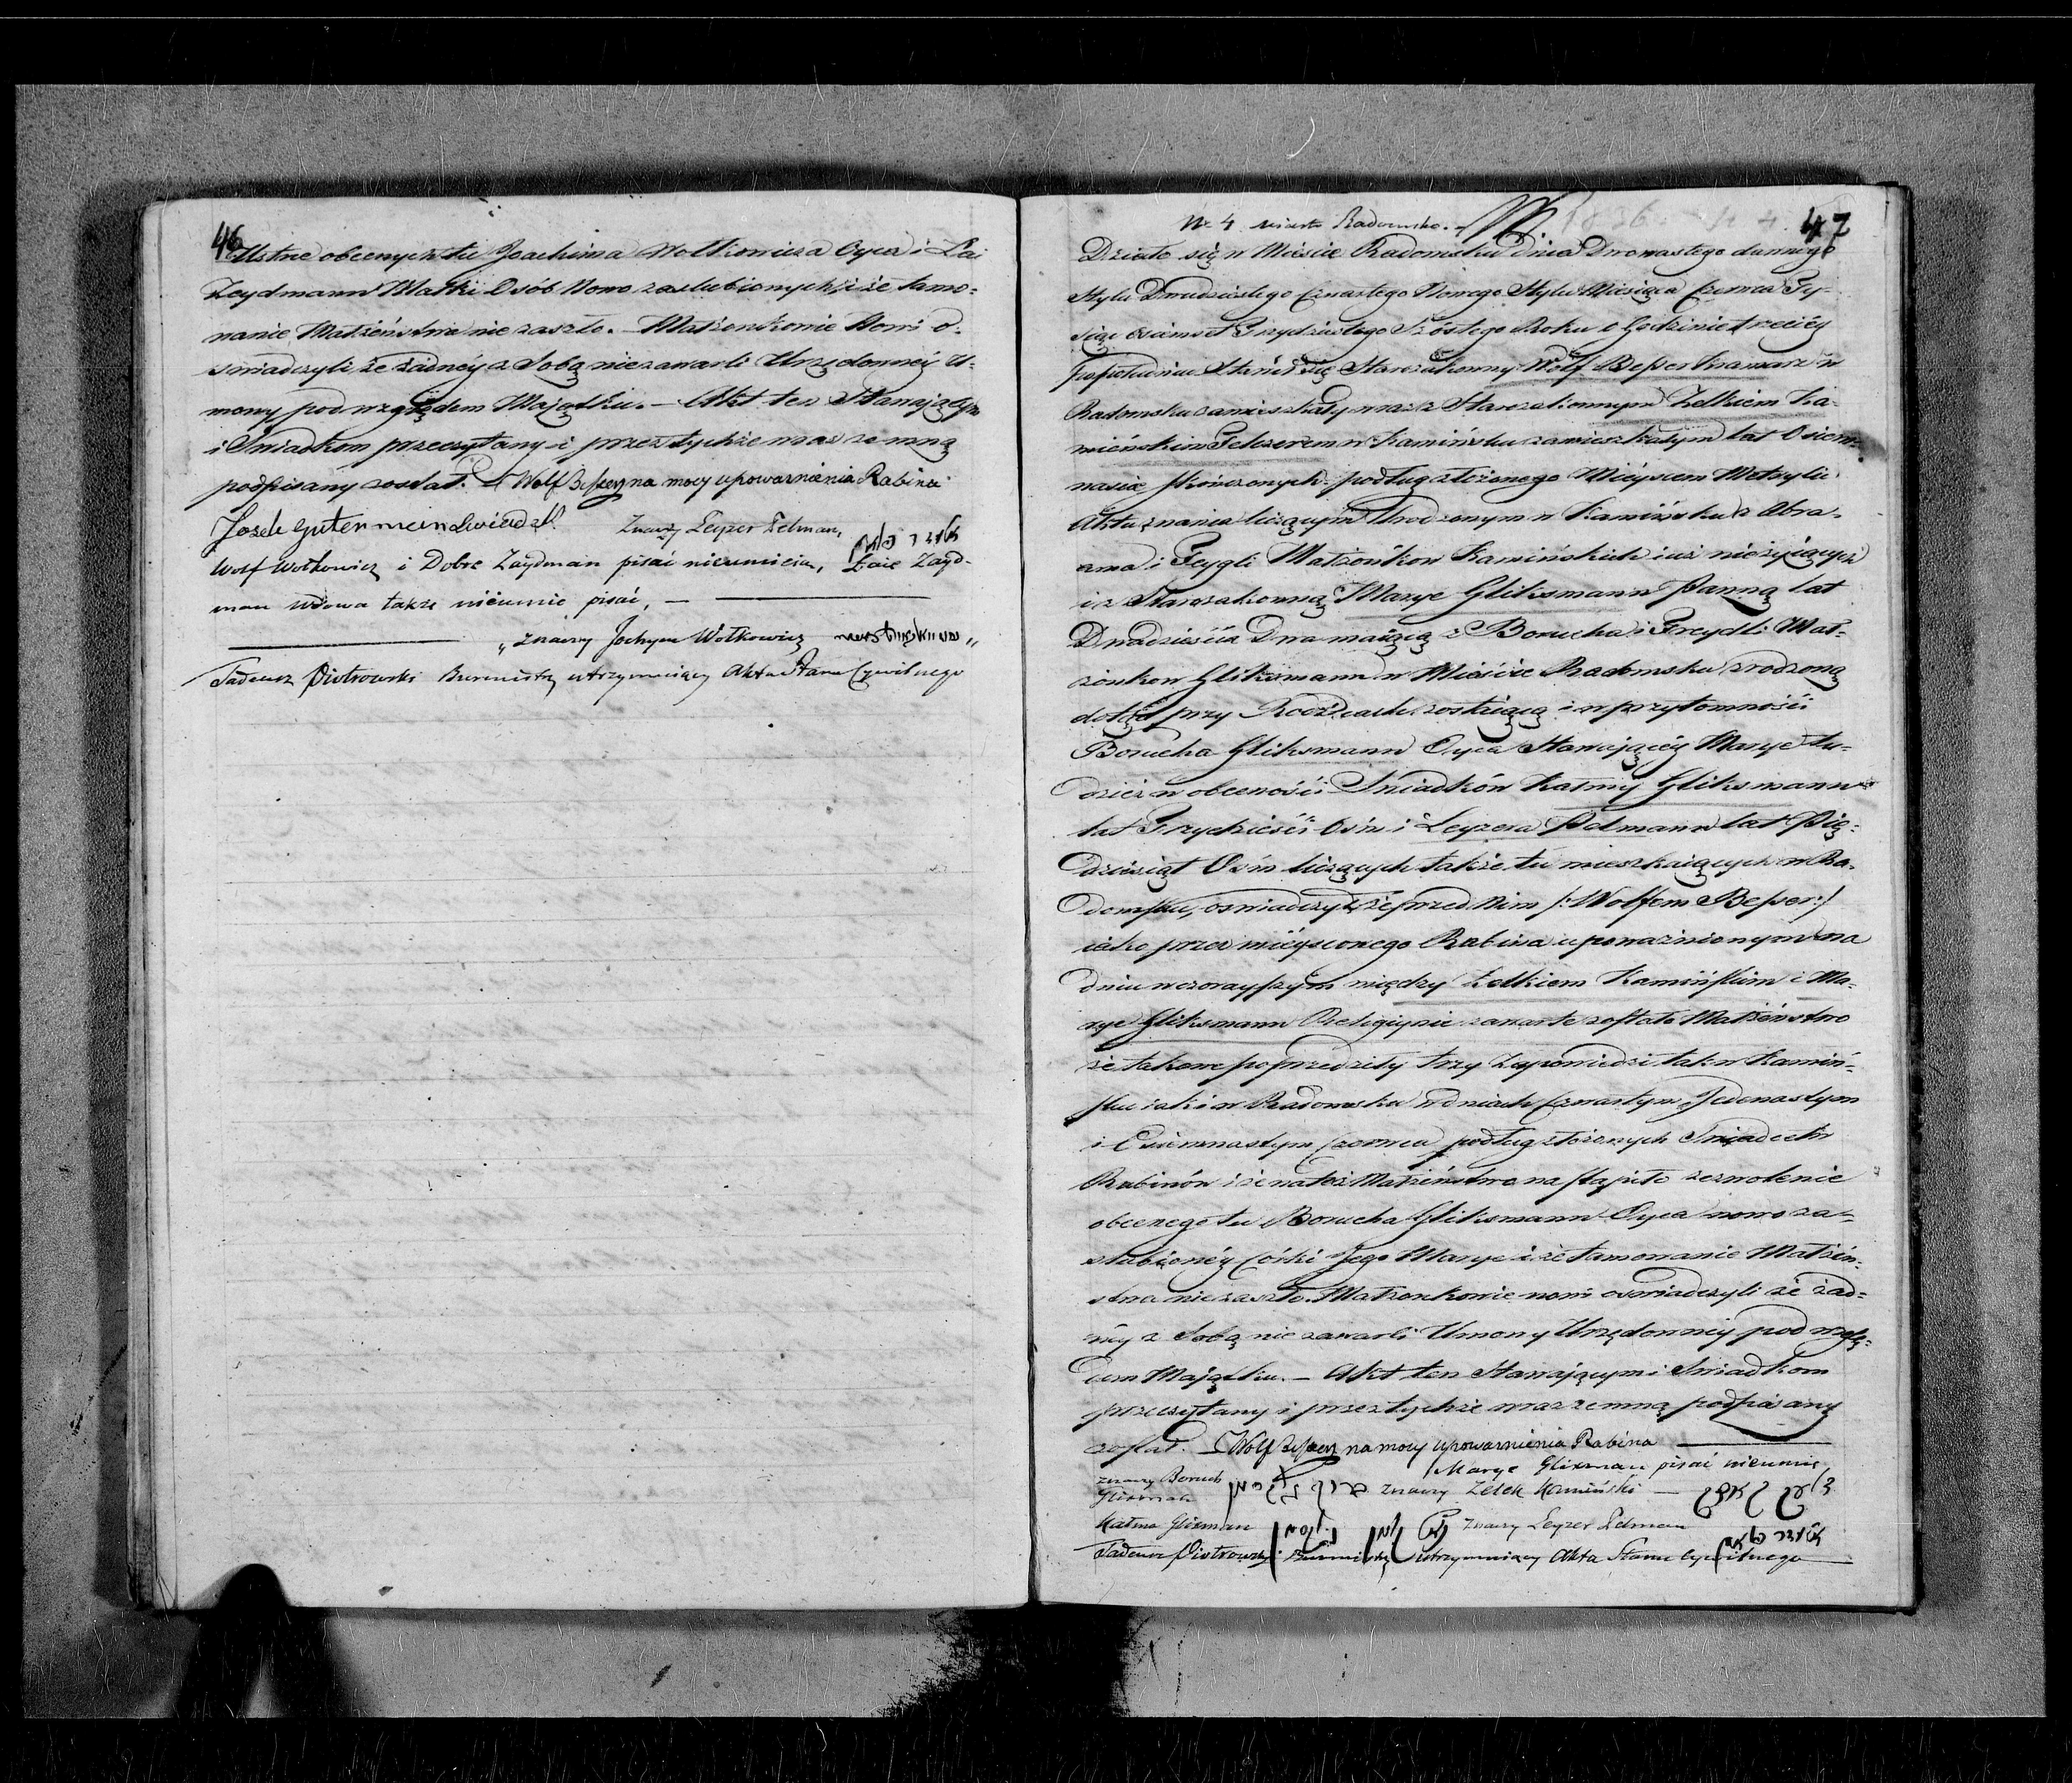 46
Ustne obecnych tu Joachima Wolkowicza Oyca i Łai
Zeydmann Matki Osób Nowo zaslubionych, i że tamo-
wanie Małżeństwa nie zaszło. — Małżonkowie Nowi o-
swiadczyli że żadnéy z Sobą nie zawarli Urzędownéy U-
mowy pod względem Majątku. — Akt ten Stawającym
i Swiadkom przeczytany i przez tychże wraz ze mną
podpisany został. Wolf Besser na mocy upoważnienia Rabina
Josek Gutermann Swiadek Znaczy Leyzer Pelman,
Wolf Wolkowicz i Dobre Zaydman pisać nieumieią, Łaie Zayd-
man wdowa także nieumie pisać, —
„znaczy Jochym Wolkowicz
Tadeusz Piotrowski Burmistrz utrzymuiący Akta Stanu Cywilnego
47
Nr 4 miasto Radomsko. 1836
Działo się w Mieście Radomsku dnia Dwonastego dawnego
Stylu Dwudziestego Czwartego Nowego Stylu Miesiąca Czerwca Ty-
siąc Osiemset Trzydziestego Szóstego Roku o Godzinie trzeciéy
popołudniu. Stawił się Starozakonny Wolf Besser Kramarz w
Radomsku zamieszkały wraz z Starozakonnym Zelkiem Ka-
mińskim Felczerem w Kamińsku zamieszkałym lat Osiem-
naście skończonych podług złożonego Mieyscem Metryki
Aktu znania liczącym Urodzonym w Kamińsku z Abra-
ama i Feygli Małżonków Kamińskich iuż nieżyiących
i z Starozakonną Marye Gliksmann Panną lat
Dwadzieścia Dwa maiącą z Borucha i Freydli Mał-
żonków Gliksmann w Mieście Radomsku zrodzoną
dotąd przy Rodzicach zostaiącą i w przytomności
Borucha Gliksmann Oyca Stawaiącéy Marye tu-
dzież w obecności Swiadków Kałmy Gliksmann
lat Trzydzieści Ośm i Leyzera Pelmann lat Pię-
dziesiąt Ośm liczących także tu mieszkaiących w Ra-
domsku, oswiadczył że przed Nim /: Wolfem Besser :/
iako przez mieyscowego Rabina upoważnionym na
dniu wczorayszym między Zelkiem Kamińskim i Ma-
rye Gliksmann Religiynie zawarte zostało Małżeństwo
że takowe poprzedziły trzy Zapowiedzi tak w Kamiń-
sku iak i w Radomsku w dniach Czwartym, Jedenastym
i Osiemnastym Czerwca podług złożonych Swiadectw
Rabinów i że na toż Małżeństwo nastąpiło zezwolenie
obecnego tu Borucha Gliksmann Oyca nowo za-
slubionéy Córki Jego Marye i że tamowanie Małżeń-
stwa nie zaszło. Małżonkowie nowi oswiadczyli że żad-
néy z Sobą nie zawarli Umowy Urzędownéy pod wzglę-
dem Majątku. — Akt ten Stawającym i Swiadkom
przeczytany i przez tychże wraz ze mną podpisany
został. — Wolf Besser na mocy upoważnienia Rabina
Marye Glixman pisać nieumie
znaczy Boruch
Glixman znaczy Zelek Kamiński —
Kałma Glixman znaczy Leyzer Pelman
Tadeusz Piotrowski Burmistrz utrzymuiący Akta Stanu Cywilnego